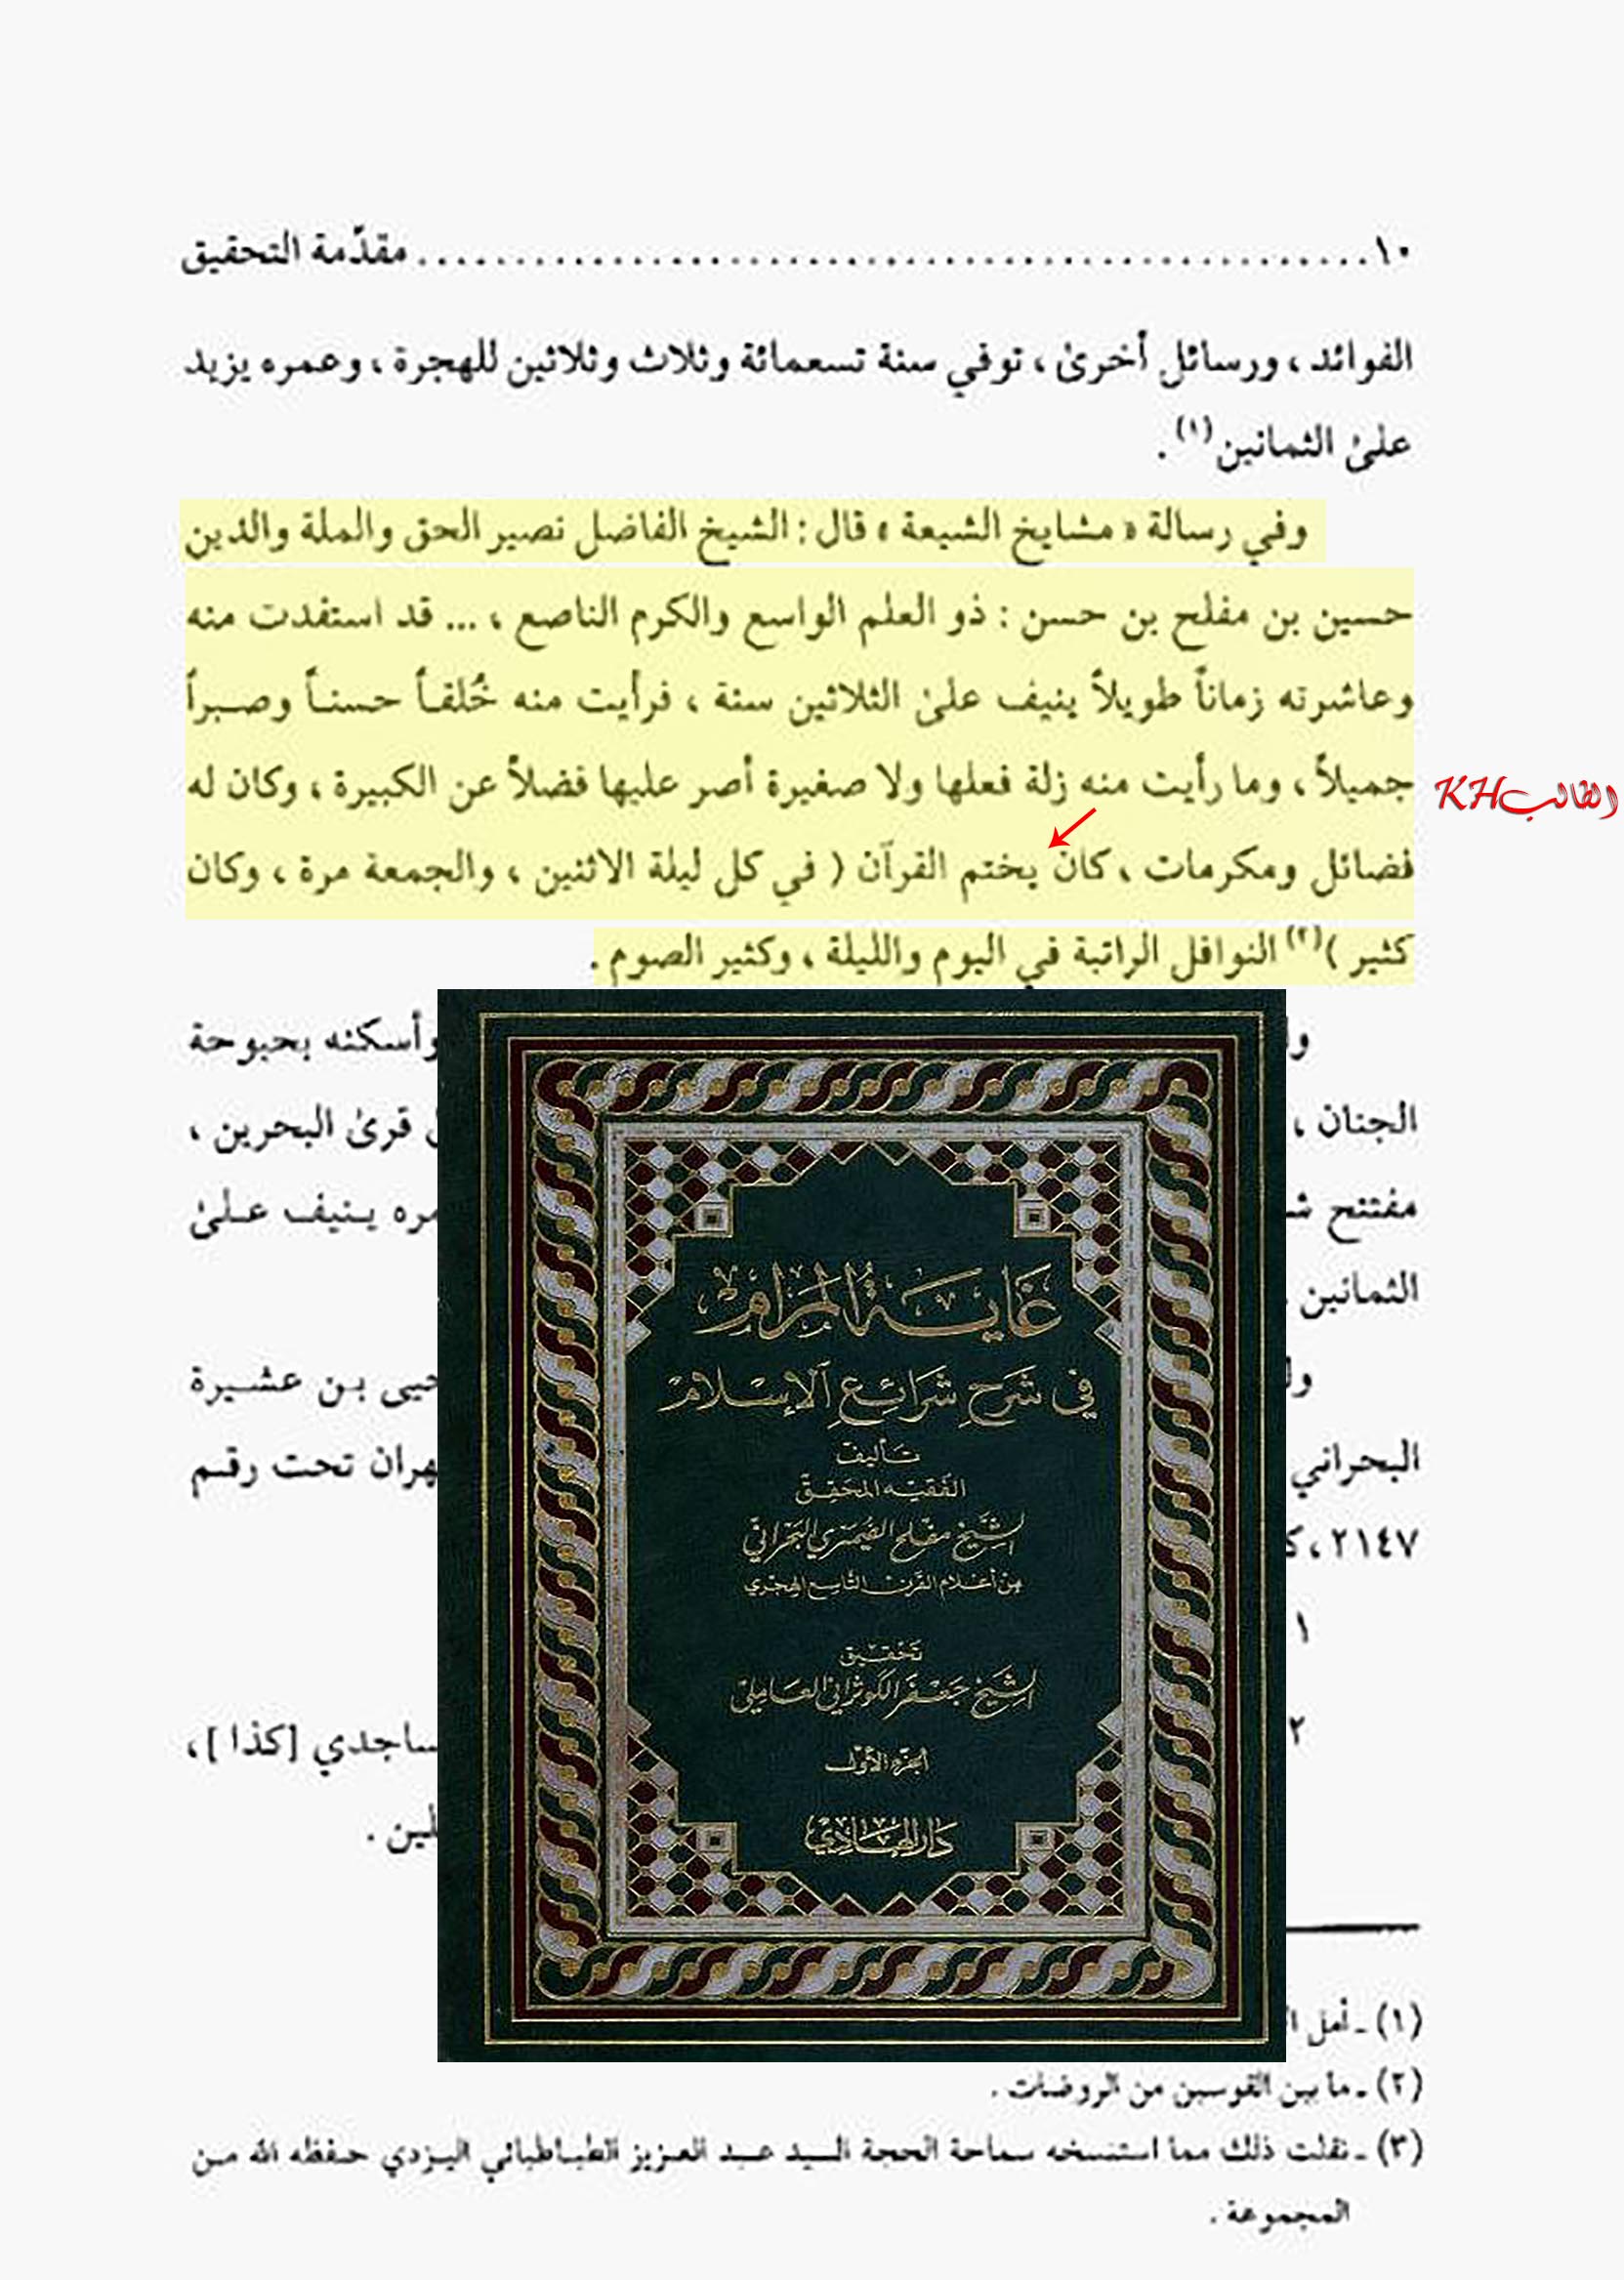 ١٠ مقدّمة التحقيق
الفوائد ، ورسائل أخرىٰ ، توفي سنة تسعمائة وثلاث وثلاثين للهجرة ، وعمره يزيد
علىٰ الثمانين(١) .
وفي رسالة « مشايخ الشيعة » قال : الشيخ الفاضل نصير الحق والملة والدين
حسين بن مفلح بن حسن : ذو العلم الواسع والكرم الناصع ، ... قد استفدت منه
وعاشرته زماناً طويلاً ينيف علىٰ الثلاثين سنة ، فرأيت منه خُلقاً حسناً وصبراً
جميلاً ، وما رأيت منه زلة فعلها ولا صغيرة أصر عليها فضلاً عن الكبيرة ، وكان له
فضائل ومكرمات ، كان يختم القرآن ( في كل ليلة الاثنين ، والجمعة مرة ، وكان
كثير )(٢) النوافل الراتبة في اليوم والليلة ، وكثير الصوم .
الطالب KH
وأسكنه بحبوحة
الجنان ، قرىٰ البحرين ،
مفتتح ينيف علىٰ
الثمانين
بن عشيرة
البحراني تحت رقم
٢١٤٧ ،
١
٢ [كذا ] ،
غاية المرام
في شرح شرائع الإسلام
تأليف
الفقيه المحقق
الشيخ مفلح الصيمري البحراني
من أعلام القرن التاسع الهجري
تحقيق
الشيخ جعفر الكوثراني العاملي
الجزء الأول
دار الهادي
(١) ـ أمل
(٢) ـ ما بين القوسين من الروضات .
(٣) ـ نقلت ذلك مما استنسخه سماحة الحجة السيد عبد العزيز الطباطبائي اليزدي حفظه الله من
المجموعة .